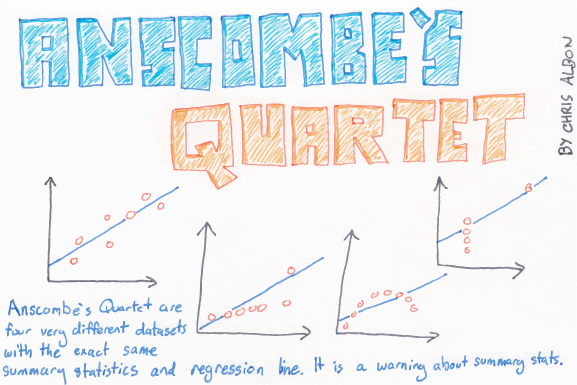 ANSCOMBE'S
QUARTET
BY CHRIS ALBON
Anscombe's Quartet are
four very different datasets
with the exact same
summary statistics and regression line. It is a warning about summary stats.